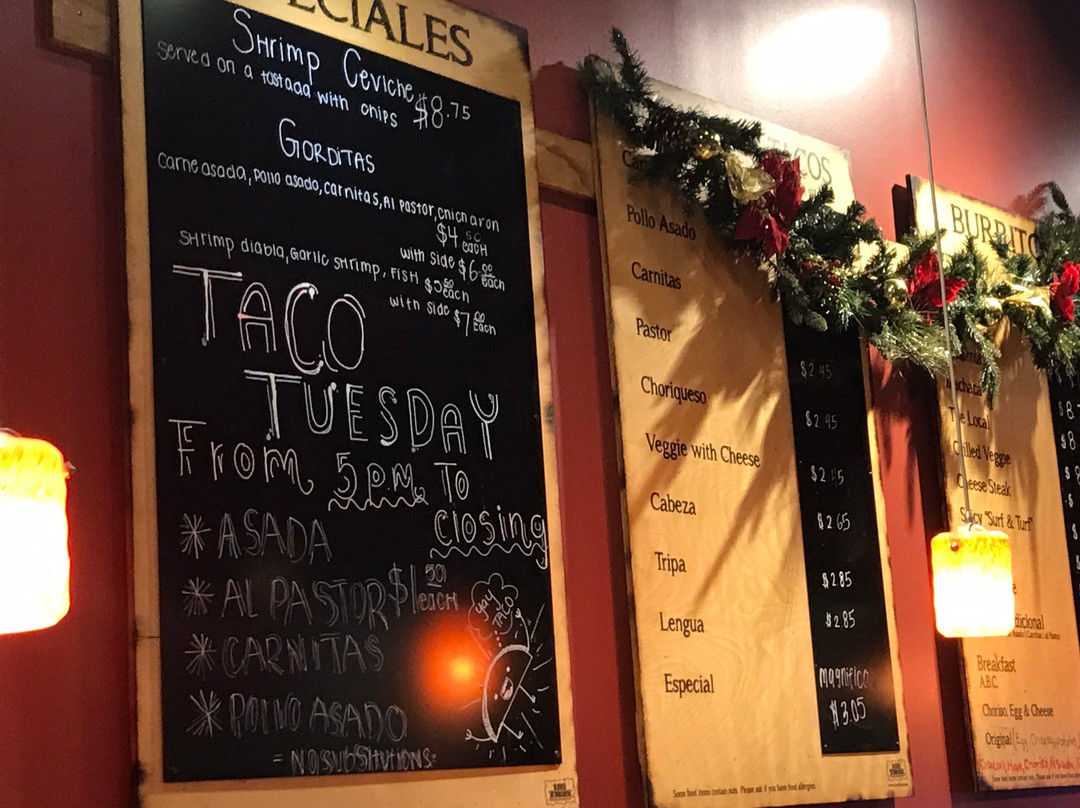 ECIALES
Shrimp Ceviche
served on a tostada with chips $8.75
GORDITAS
carne asada, pollo asado, carnitas, Al pastor, chicharon
$4.50 each
with side $6.00 each
SHrimp diabla, Garlic shrimp, FISH $5.00 each
with side $7.00 Each
TACO
TUESDAY
From 5pm TO
closing
* ASADA
* AL PASTOR $1.50 each
* CARNITAS
* POLLO ASADO
= NO SUBSTITUTIONS =
yay
TACO
LOS TACOS
TACOS
Car
Pollo Asado
Carnitas
Pastor
$2.45
Choriqueso
$2.45
Veggie with Cheese
$2.45
Cabeza
$2.65
Tripa
$2.85
Lengua
$2.85
Especial
magnifico
$3.05
Some food items contain nuts. Please ask if you have food allergies.
LOS TACOS
BURRITO
The Local
Grilled Veggie
Cheese Steak
Spicy "Surf & Turf"
$8
$8
dicional
Breakfast
A.B.C.
Choriso, Egg & Cheese
Original
Some food items contain nuts. Please ask if you have food